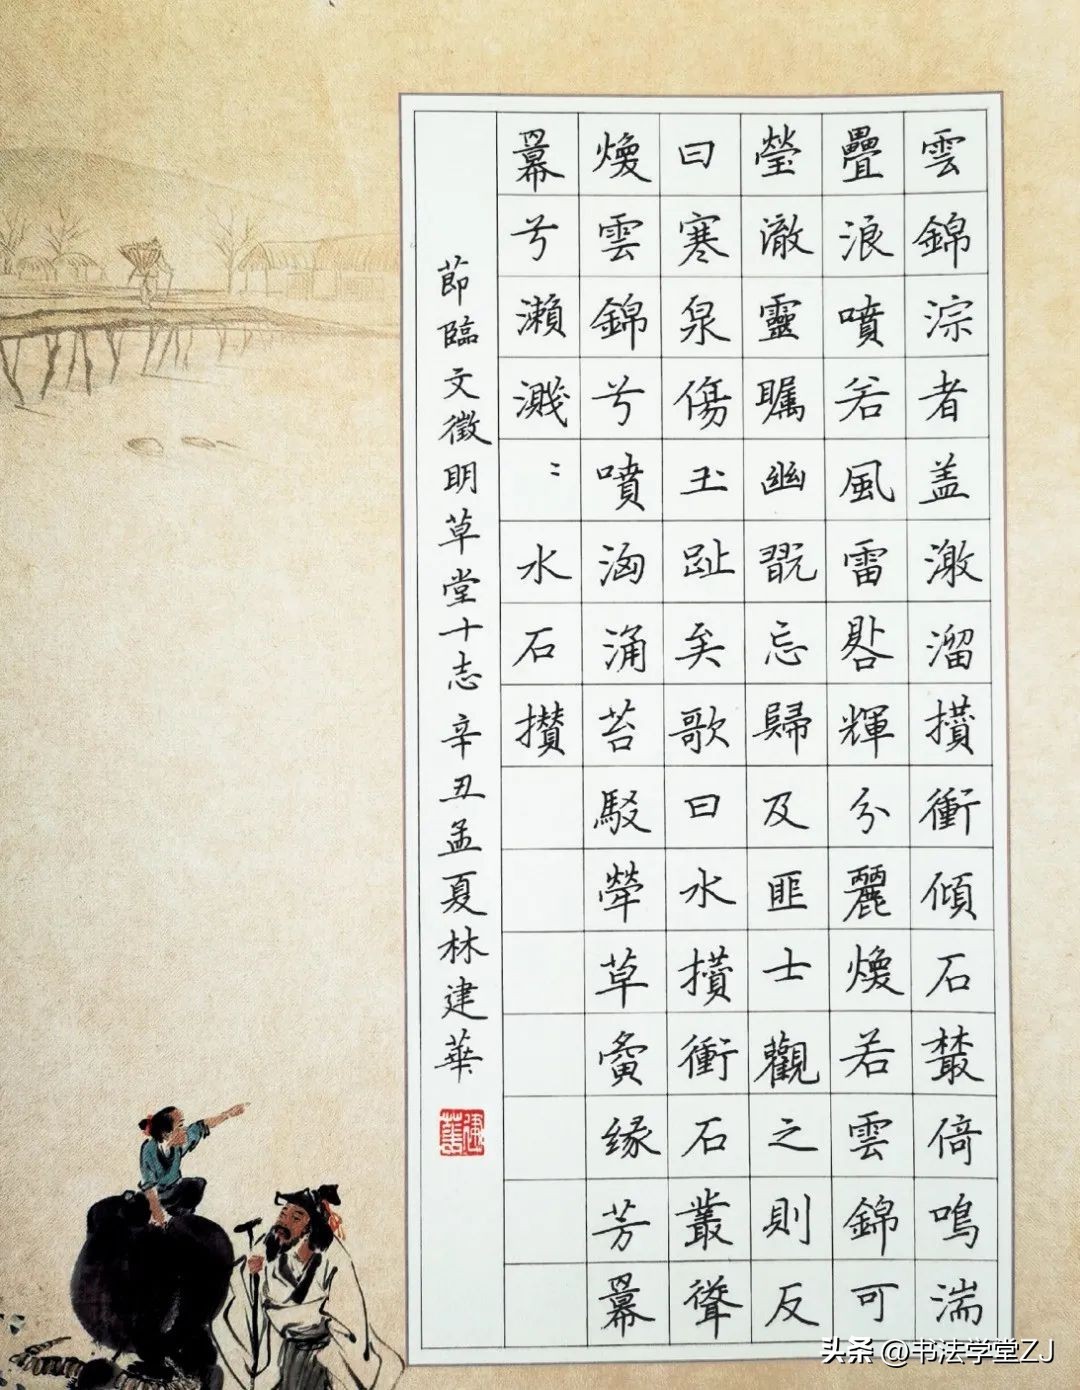 雲錦淙者盖激溜攢衝傾石藂倚鳴湍
疊浪噴若風雷輝分麗煥若雲錦可
瑩澈靈矚幽翫忘歸及匪士觀之則反
曰寒泉傷玉趾矣歌曰水攢衝石叢聳
煥雲錦兮噴洶涌苔駁犖草夤緣芳冪
冪兮瀨濺〻水石攢
節臨文徵明草堂十志辛丑孟夏林建華
头条 @书法学堂ZJ